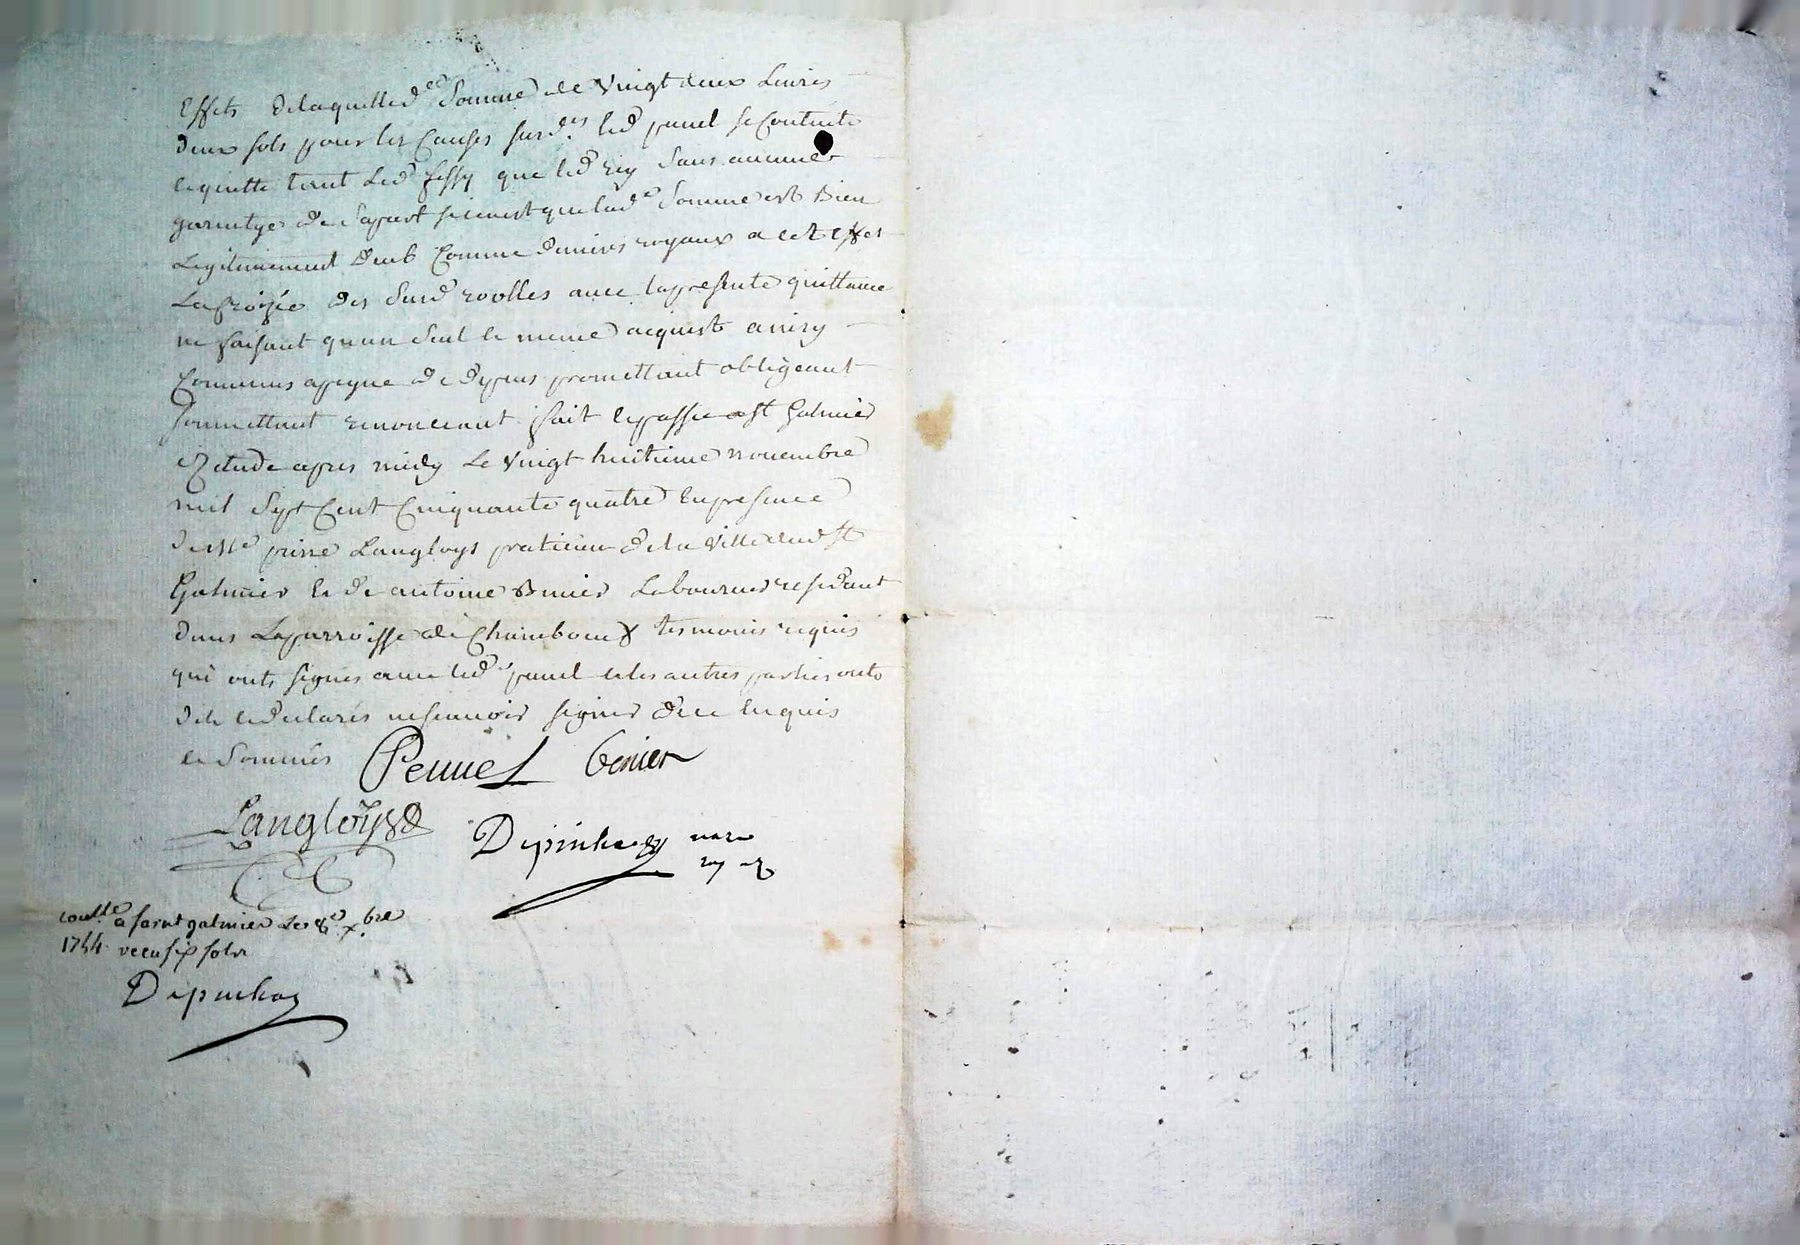 Effets delaquelled.ee Somme de Vingt deux Livres
deux sols pour les Causes surd.es led panel se Contente
equitte tant Led fessy que led rey Sans aucune
garentye de Sapart sicenest quelad.e Somme est Bien
Legitimement deub Comme deniers royaux a cet effet
des Surd roolles avec lapresente quittance
ne faisant quun Seul le meme acquist ainsy
Convenus apeyne de depens promettant obligeant
soumettant renonceant fait epassee a St Galmier
Etude apres midy Le Vingt huitieme novembre
mil Sept Cent Cinquante quatre Enpresence
de pierre Langloys praticien dela Ville dud St
Galmier Et de antoine Laboureur residant
dans Laparroisse de Chamboeuf tesmoins requis
qui onts signes avec led panel et les autres parties onts
dit edeclares nescavoir signer dece Enquis
et Sommés Pennel
Langloys
Depinhac nore
Conlle a saint galmier Le 8e xbre
1754 receu six sols
Depinhac